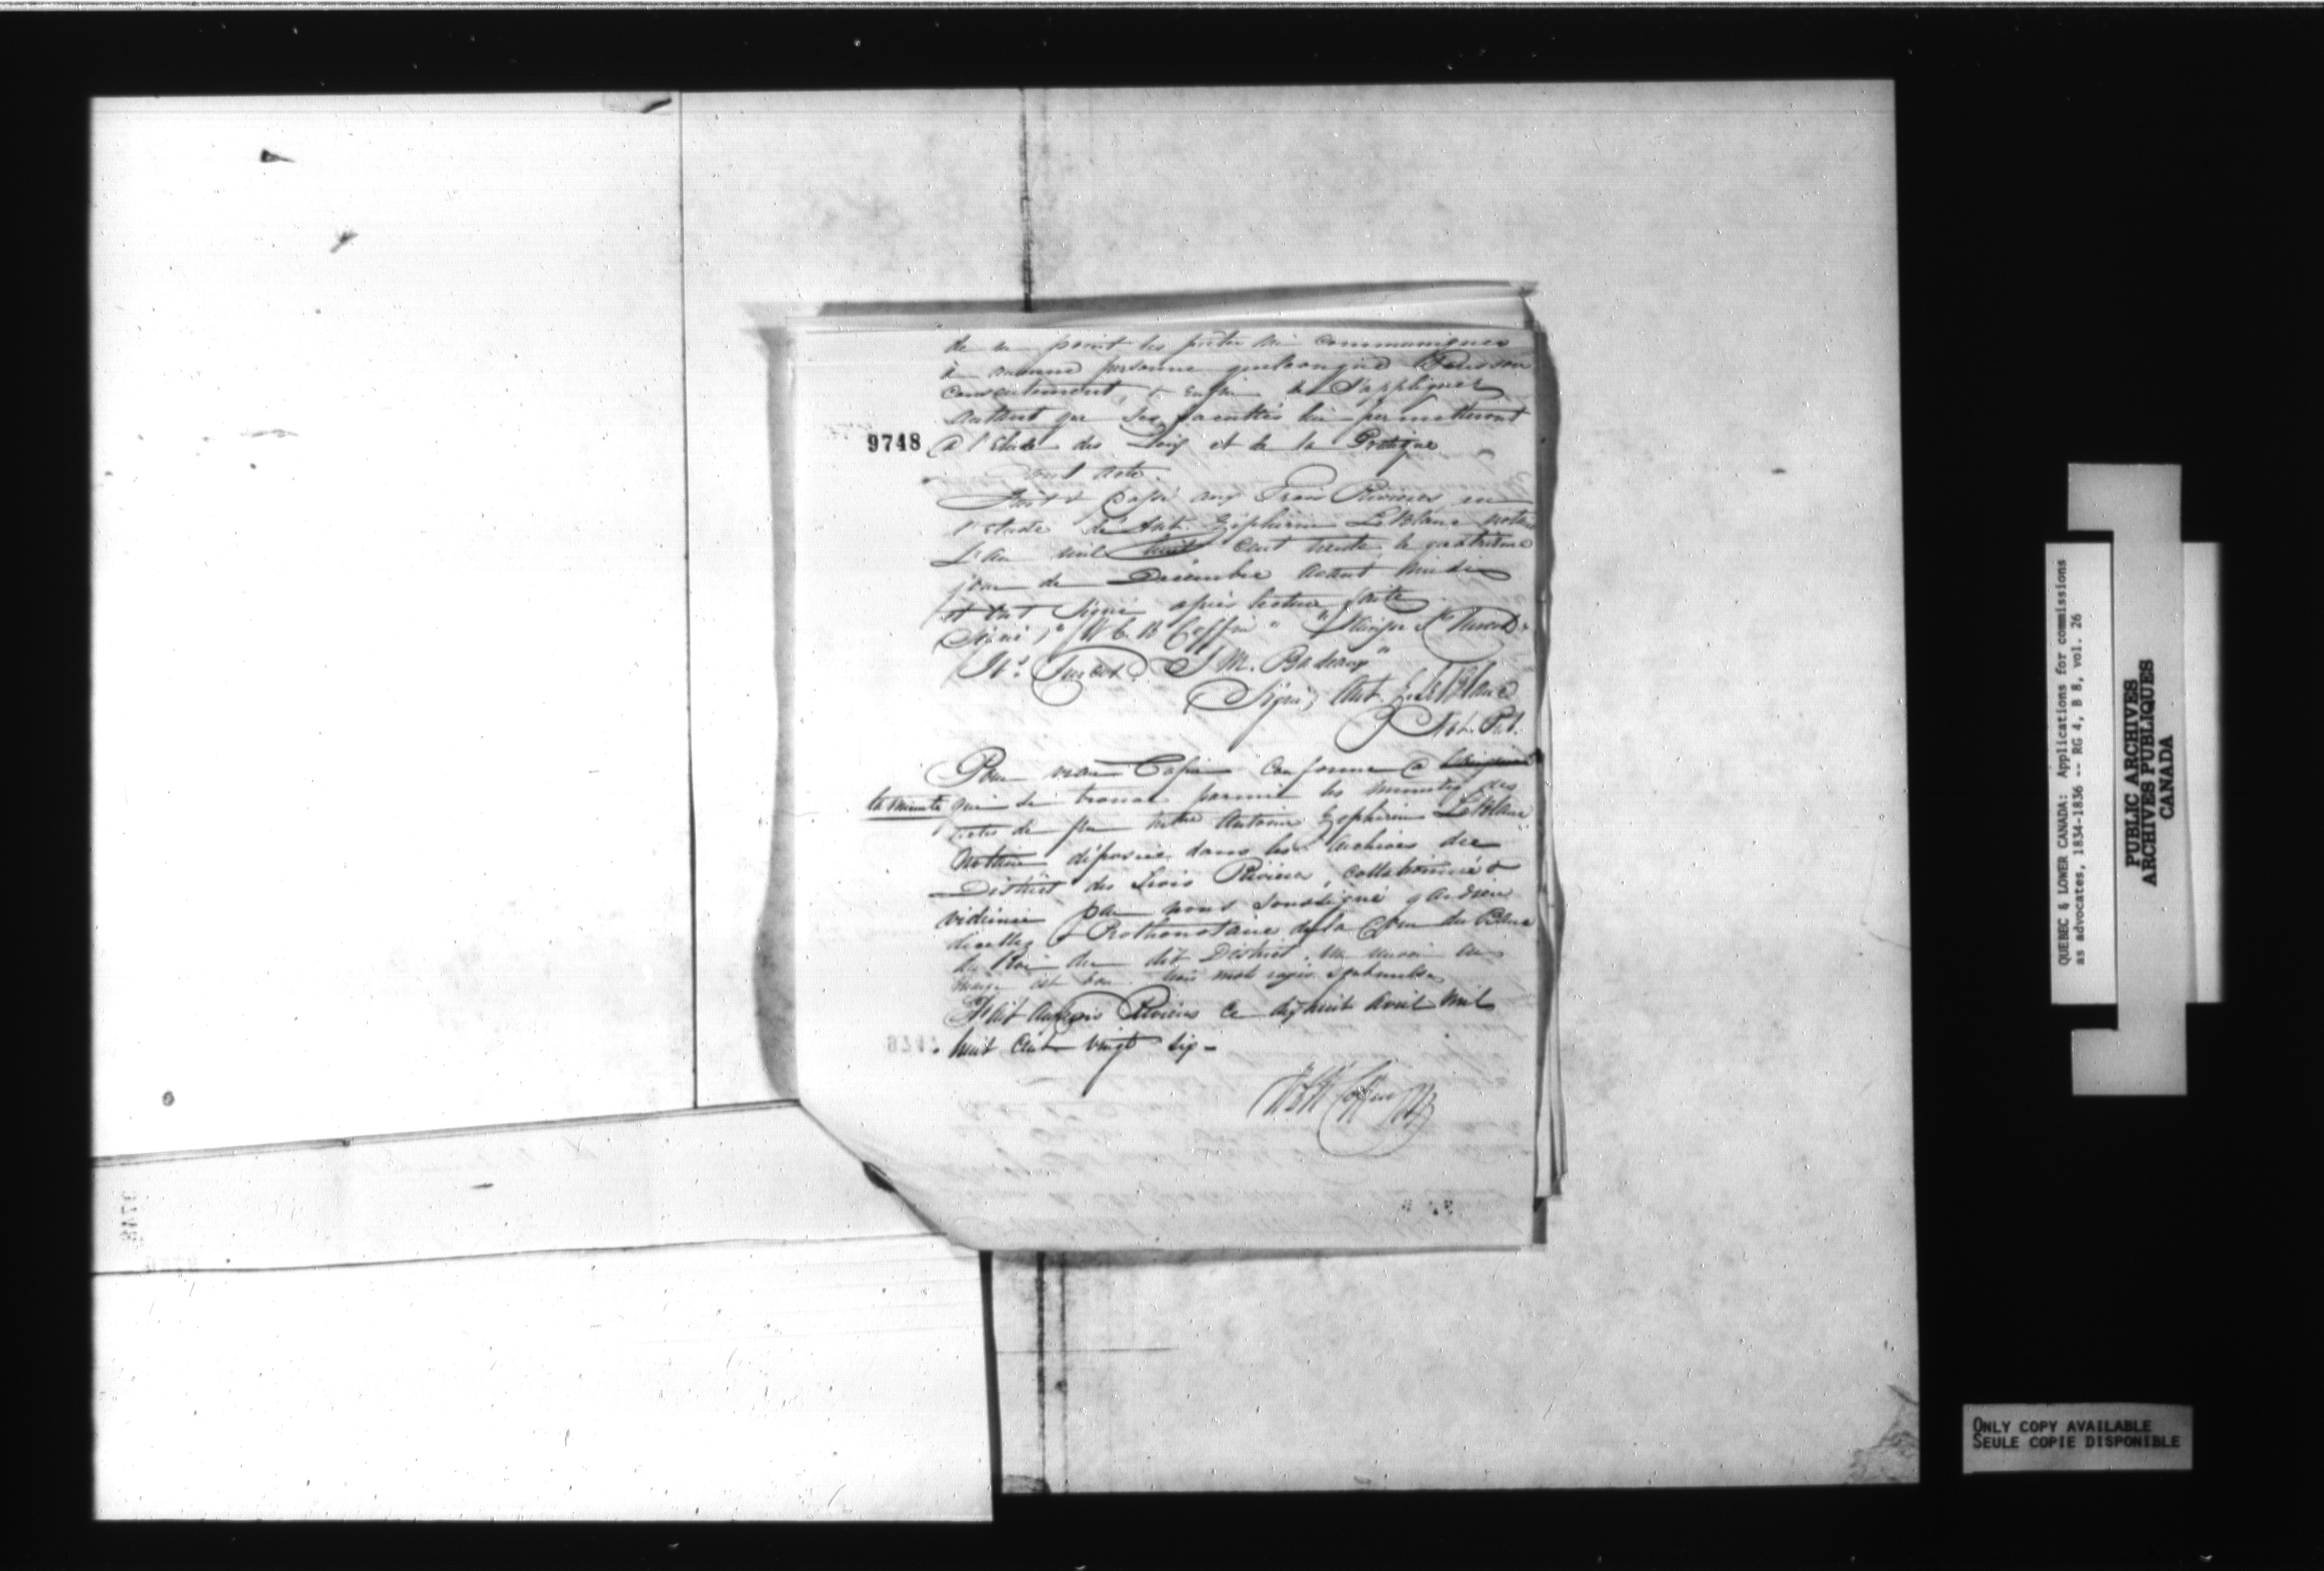 de ne point les prêter ni communiquer
à aucune personne quelconque sans son
consentement, & enfin de S'appliquer
autant que ses facultés lui permetteront
9748
à l'Etude des Loix et de la Pratique
dont acte.
Fait & Passé aux Trois Rivieres en
l'Etude de Ant. Zéphirin LeBlanc notaire
L'an mil huit cent trente le
jour de Décembre avant midi
et ont Signé après lecture faite
(Signé) "W C. H Coffin"
"Jh. Turcot" "J M. Badeaux"
Signé, Ant. Z. LeBlanc
Not. Pub.
Pour vraie Copie conforme à
la minute qui se trouve parmi les minutes des
actes de feu Mtre Antoine Zephirin LeBlanc
Notaire déposés dans les Archives du
District des Trois Rivieres, collationné &
vidimée par nous Soussigné gardien
d'icelles & Prothonotaire de la Cour du Banc
du Roi du dit District. Un renvoi en
marge est bon. trois mots rayés
Fait aux Trois Rivieres ce dix huit Avril mil
huit cent vingt six -
W C H Coffin
QUEBEC & LOWER CANADA: Applications for commissions
as advocates, 1834-1836 -- RG 4, B 8, vol. 26
PUBLIC ARCHIVES
ARCHIVES PUBLIQUES
CANADA
ONLY COPY AVAILABLE
SEULE COPIE DISPONIBLE